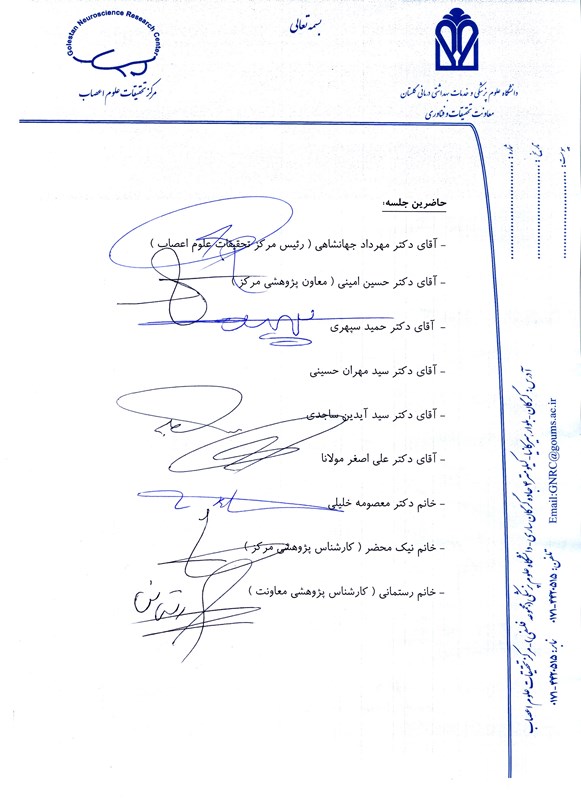 بسمه تعالی
Golestan Neuroscience Research Center
مرکز تحقیقات علوم اعصاب
دانشگاه علوم پزشکی و خدمات بهداشتی درمانی گلستان
معاونت تحقیقات و فناوری
شماره:
تاریخ:
پیوست:
حاضرین جلسه:
- آقای دکتر مهرداد جهانشاهی ( رئیس مرکز تحقیقات علوم اعصاب )
- آقای دکتر حسین امینی ( معاون پژوهشی مرکز )
- آقای دکتر حمید سپهری
- آقای دکتر سید مهران حسینی
- آقای دکتر سید آیدین ساجدی
- آقای دکتر علی اصغر مولانا
- خانم دکتر معصومه خلیلی
- خانم نیک محضر ( کارشناس پژوهشی مرکز )
- خانم رستمانی ( کارشناس پژوهشی معاونت )
آدرس: گرگان - بلوار هیرکانیا - کیلومتر ۴ جاده گرگان ساری - دانشگاه علوم پزشکی (مجموعه فلسفی) - مرکز تحقیقات علوم اعصاب
Email:GNRC@goums.ac.ir تلفن: ۴۴۲۰۵۱۵-۰۱۷۱ نمابر: ۴۴۲۰۵۱۵-۰۱۷۱